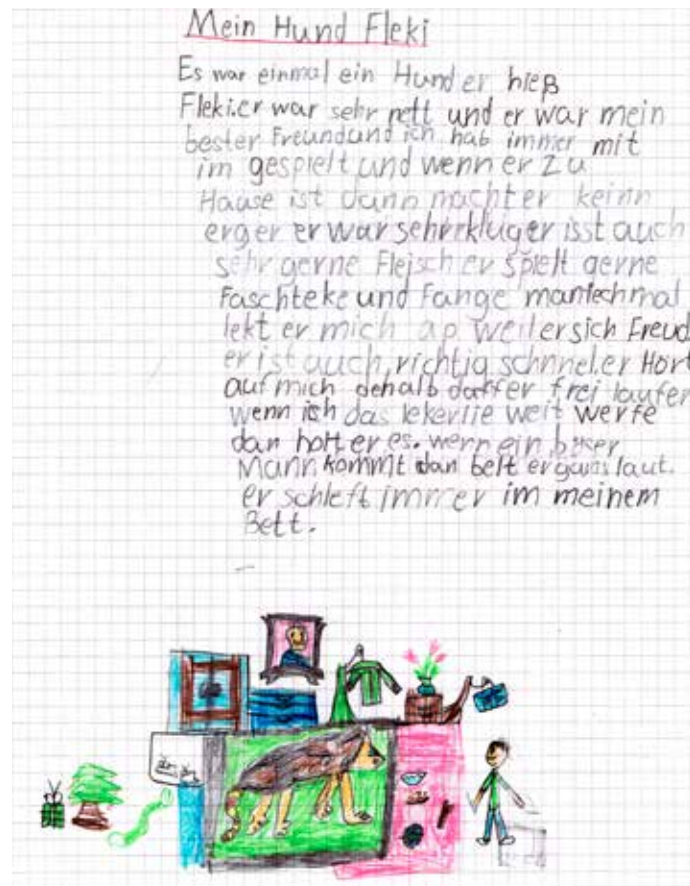 Mein Hund Fleki
Es war einmal ein Hund er hieß
Fleki.er war sehr nett und er war mein
bester Freund und ich hab immer mit
im gespielt und wenn er zu
Hause ist dann machter keinn
erger er war sehr kluger isst auch
sehr gerne Flejsch er spielt gerne
Faschteke und Fange mantechmal
lekt er mich ap weil er sich Freud
er ist auch richtig schnneler Hört
auf mich dehalb daffer frei laufen
wenn ich das lekerlie weit werfe
dan holt er es. wenn ein böser
Mann kommt dan belt er gans laut.
er schleft immer im meinem
Bett.